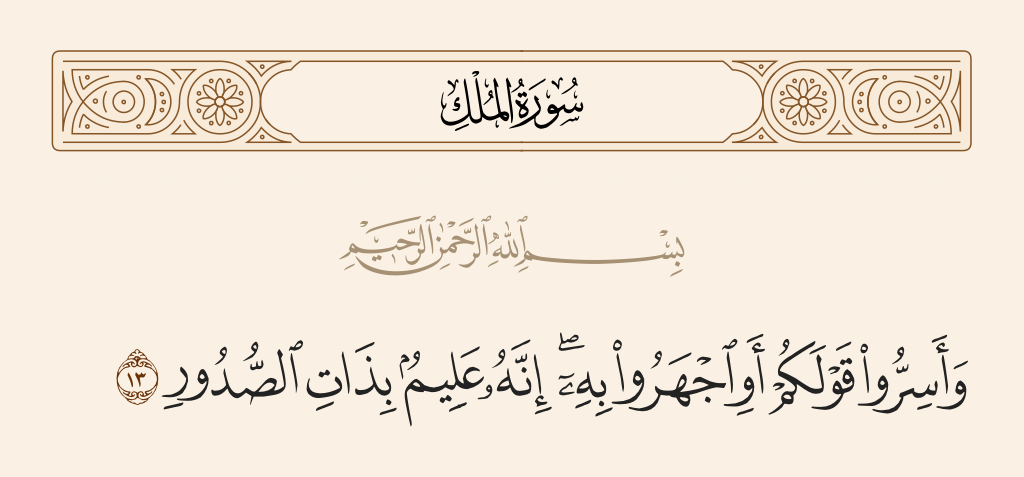 سُورَةُ المُلْكِ
بِسْمِ ٱللَّهِ ٱلرَّحْمَٰنِ ٱلرَّحِيمِ
وَأَسِرُّوا۟ قَوْلَكُمْ أَوِ ٱجْهَرُوا۟ بِهِۦٓ ۖ إِنَّهُۥ عَلِيمٌۢ بِذَاتِ ٱلصُّدُورِ ١٣